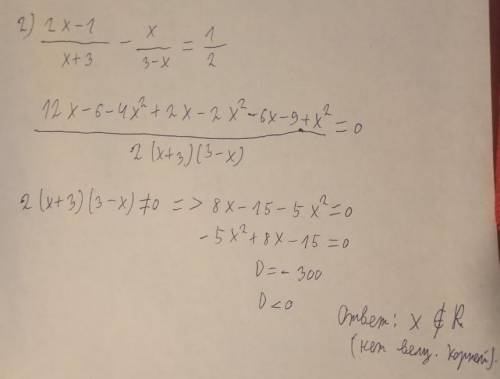 2) (2x-1)/(x+3) - x/(3-x) = 1/2
(12x-6-4x²+2x-2x²-6x-9+x²)/(2(x+3)(3-x)) =0
2(x+3)(3-x)≠0 => 8x-15-5x²=0
-5x²+8x-15=0
D=-300
D<0
Ответ: x ∉ R
(нет вещ. корней).